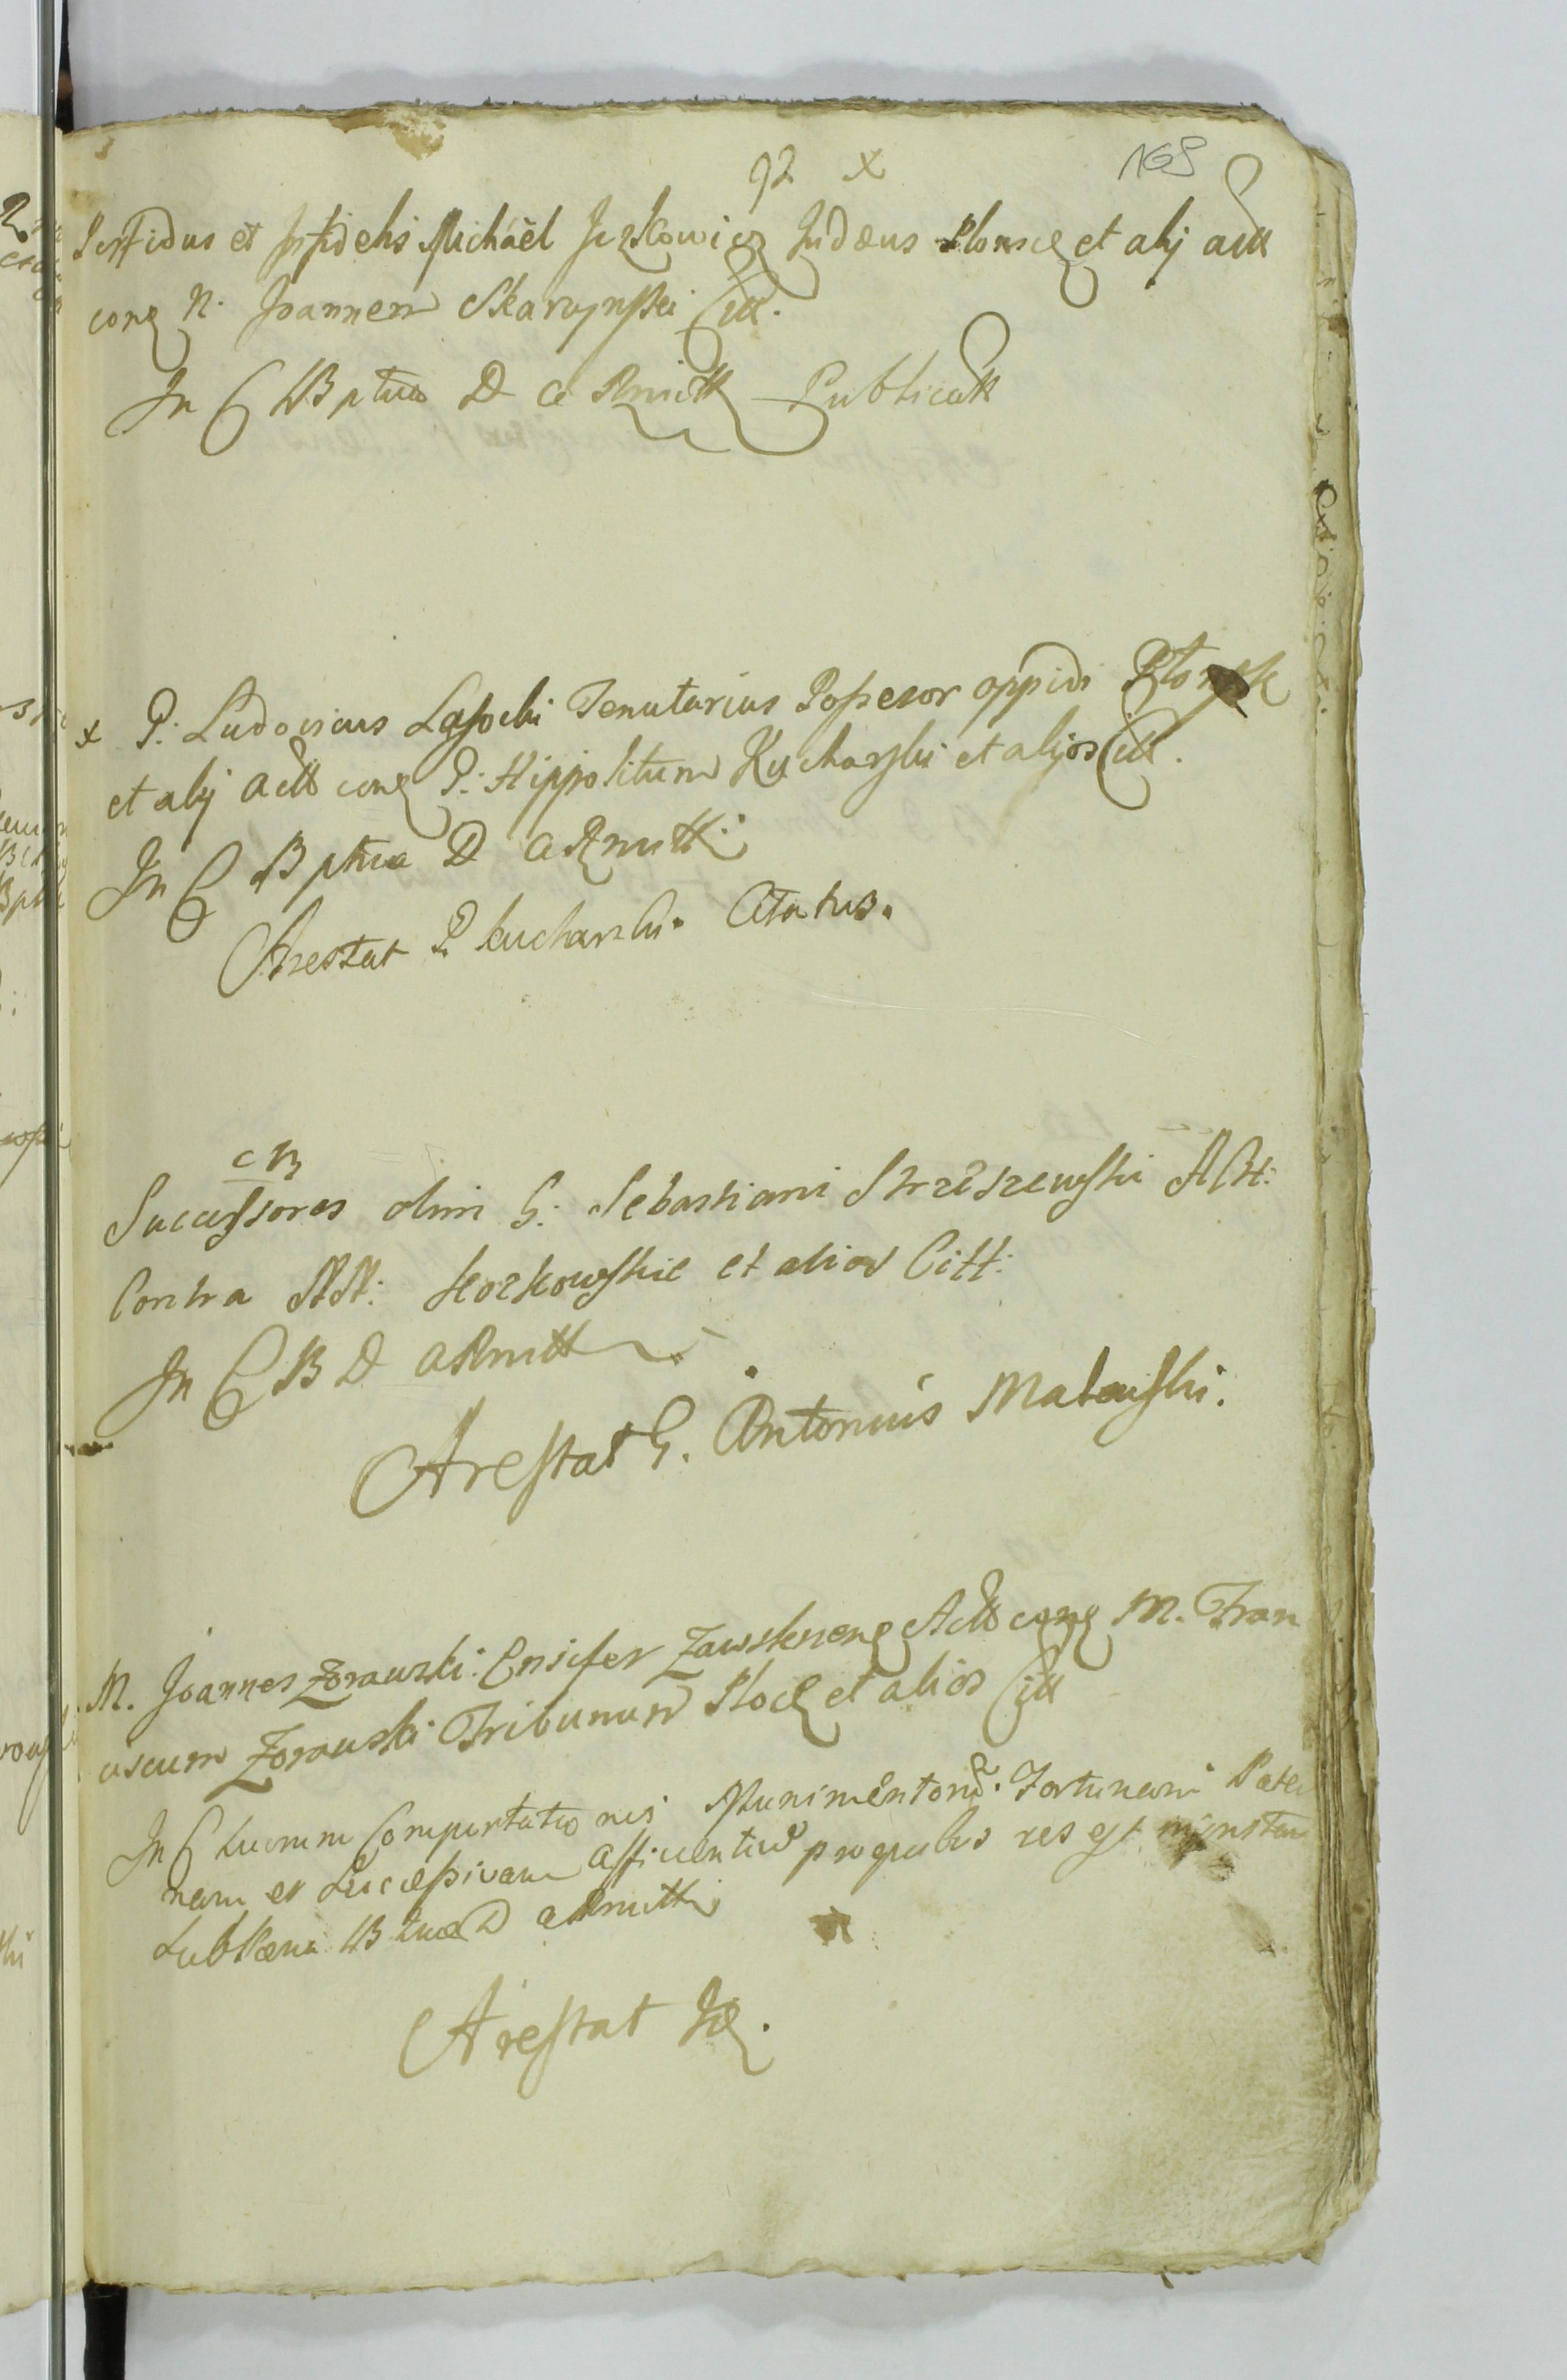 92 x
165
Perfidus et Infidelis Michaël Jczkowicz Judæus Plonsc et alij act
con N. Joannem Skarzynski Citt.
In C B ptua D a Rmitt Publicatt
x P. Ludovicus Lasocki Tenutarius Possesor oppidi Plonsk
et alij Act con P. Hippolitum Kucharski et alijos Citt.
In C B ptua D a Rmitt
Arestat P. Kucharski Citatus.
C B
Successores olim G. Sebastiani Strzeszewski Act:
Contra NN: Kozkowskie et alios Citt:
In C B D a Rmitt
Arestat G. Antonius Malewski.
M. Joannes Zorawski Ensifer Zawskrzen Act con M. Fran
ciscum Zorawski Tribunum Ploc et alios Citt
In C Luorum Comportationis Munimentor. Fortunam Pater
nam et Successivam afficientium pro quibus res est
Sub Pæna B D a Rmitt
Arestat